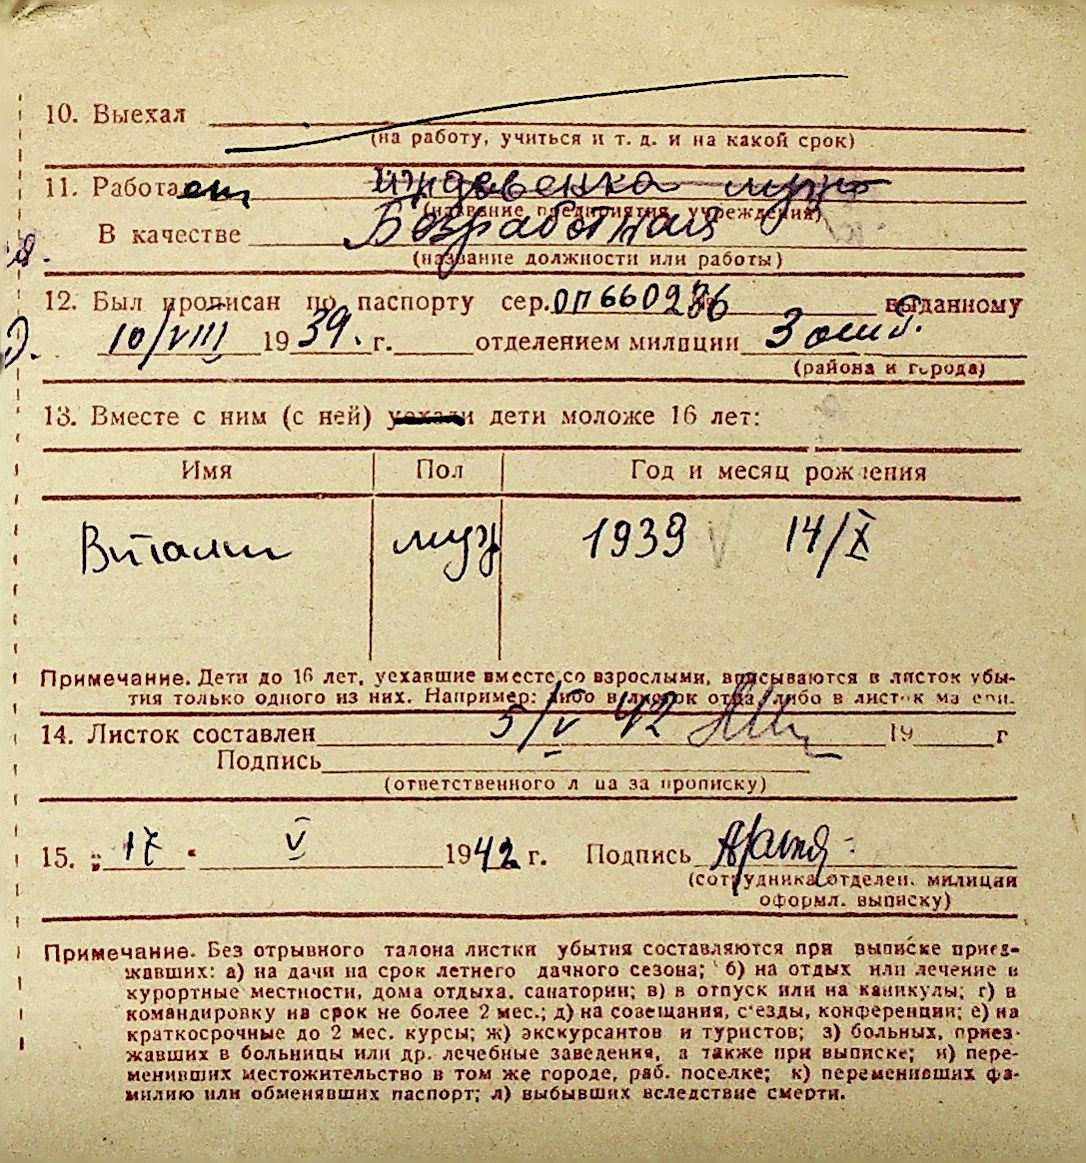 10. Выехал
(на работу, учиться и т. д. и на какой срок)
11. Работает иждивенка мужа
(название предприятия, учреждения)
В качестве Безработная
(название должности или работы)
12. Был прописан по паспорту сер. ОП 660236 выданному
10/VIII 1939. г. отделением милиции 3 отд.
(района и города)
13. Вместе с ним (с ней) уехали дети моложе 16 лет:
Имя Пол Год и месяц рождения
Виталий муж 1939 14/X
Примечание. Дети до 16 лет, уехавшие вместе со взрослыми, вписываются в листок убы-
тия только одного из них. Например: либо в листок отца, либо в листок матери.
14. Листок составлен 5/V 42 19 г
Подпись
(ответственного лица за прописку)
15. „ 17 " V 1942 г. Подпись
(сотрудника отделен. милиции
оформл. выписку)
Примечание. Без отрывного талона листки убытия составляются при выписке приез-
жавших: а) на дачи на срок летнего дачного сезона; б) на отдых или лечение в
курортные местности, дома отдыха, санатории; в) в отпуск или на каникулы; г) в
командировку на срок не более 2 мес.; д) на совещания, с'езды, конференции; е) на
краткосрочные до 2 мес. курсы; ж) экскурсантов и туристов; з) больных, приез-
жавших в больницы или др. лечебные заведения, а также при выписке; и) пере-
менивших местожительство в том же городе, раб. поселке; к) переменивших фа-
милию или обменявших паспорт; л) выбывших вследствие смерти.